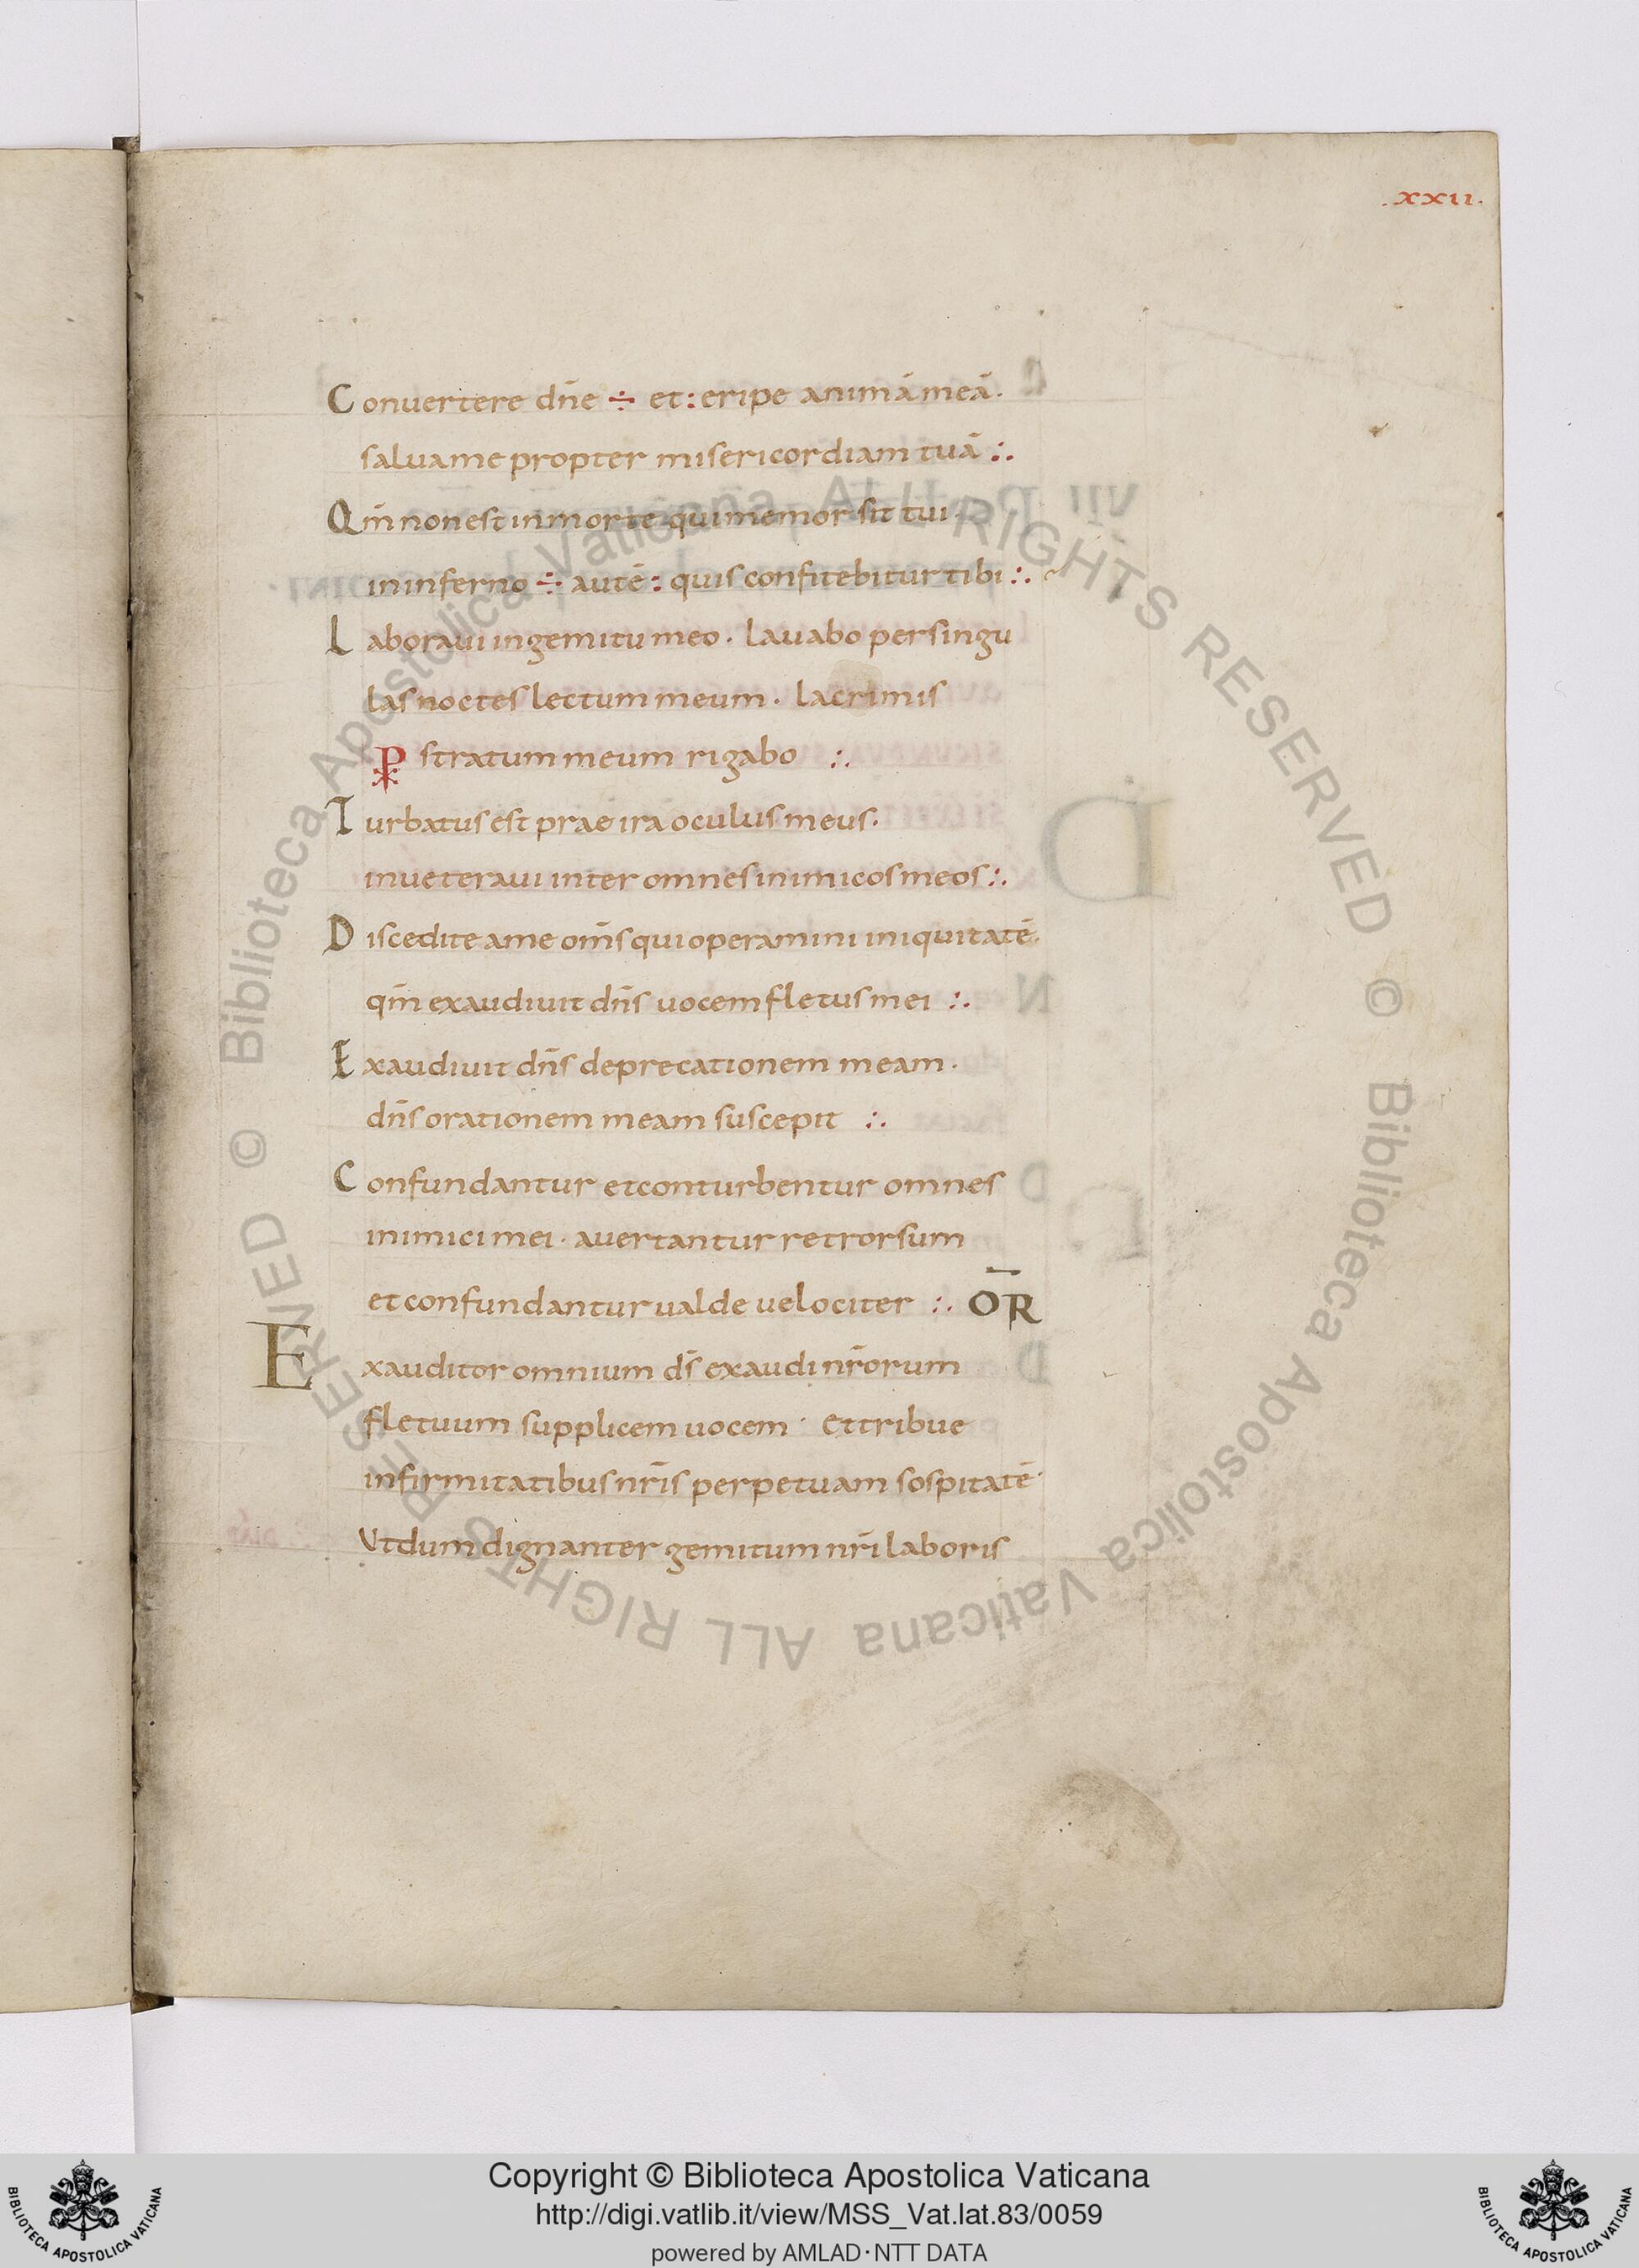 .xxii.
Conuertere dn̄e ÷ et: eripe animā meā.
salua me propter misericordiam tuā :.
Qm̄ non est in morte qui memor sit tui.
in inferno ÷ autē: quis confitebitur tibi :.
Laboraui in gemitu meo. lauabo per singu
las noctes lectum meum. lacrimis
⳨ stratum meum rigabo :.
Turbatus est prae ira oculus meus.
inueteraui inter omnes inimicos meos :.
Discedite a me om̄s qui operamini iniquitatē.
qm̄ exaudiuit dn̄s uocem fletus mei :.
Exaudiuit dn̄s deprecationem meam.
dn̄s orationem meam suscepit :.
Confundantur et conturbentur omnes
inimici mei. auertantur retrorsum
et confundantur ualde uelociter :. OR̄
Exauditor omnium ds̄ exaudi nr̄orum
fletuum supplicem uocem · et tribue
infirmitatibus nr̄is perpetuam sospitatē·
Ut dum dignanter gemitum nr̄i laboris
© Biblioteca Apostolica Vaticana ALL RIGHTS RESERVED
© Biblioteca Apostolica Vaticana ALL RIGHTS RESERVED
Copyright © Biblioteca Apostolica Vaticana
http://digi.vatlib.it/view/MSS_Vat.lat.83/0059
powered by AMLAD·NTT DATA
BIBLIOTECA APOSTOLICA VATICANA
BIBLIOTECA APOSTOLICA VATICANA